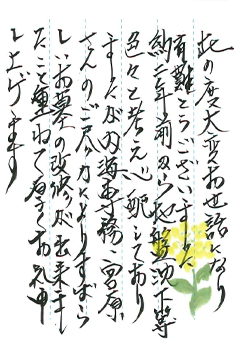 此の度大変お世話になり
有難とうございました
約二年前から地盤沈下等
色々と考え心配しており
ましたが内海専務 宮原
さんのご尽力によりすばら
しいお墓の改修が出来まし
たこと重ねて厚くお礼申
し上げます